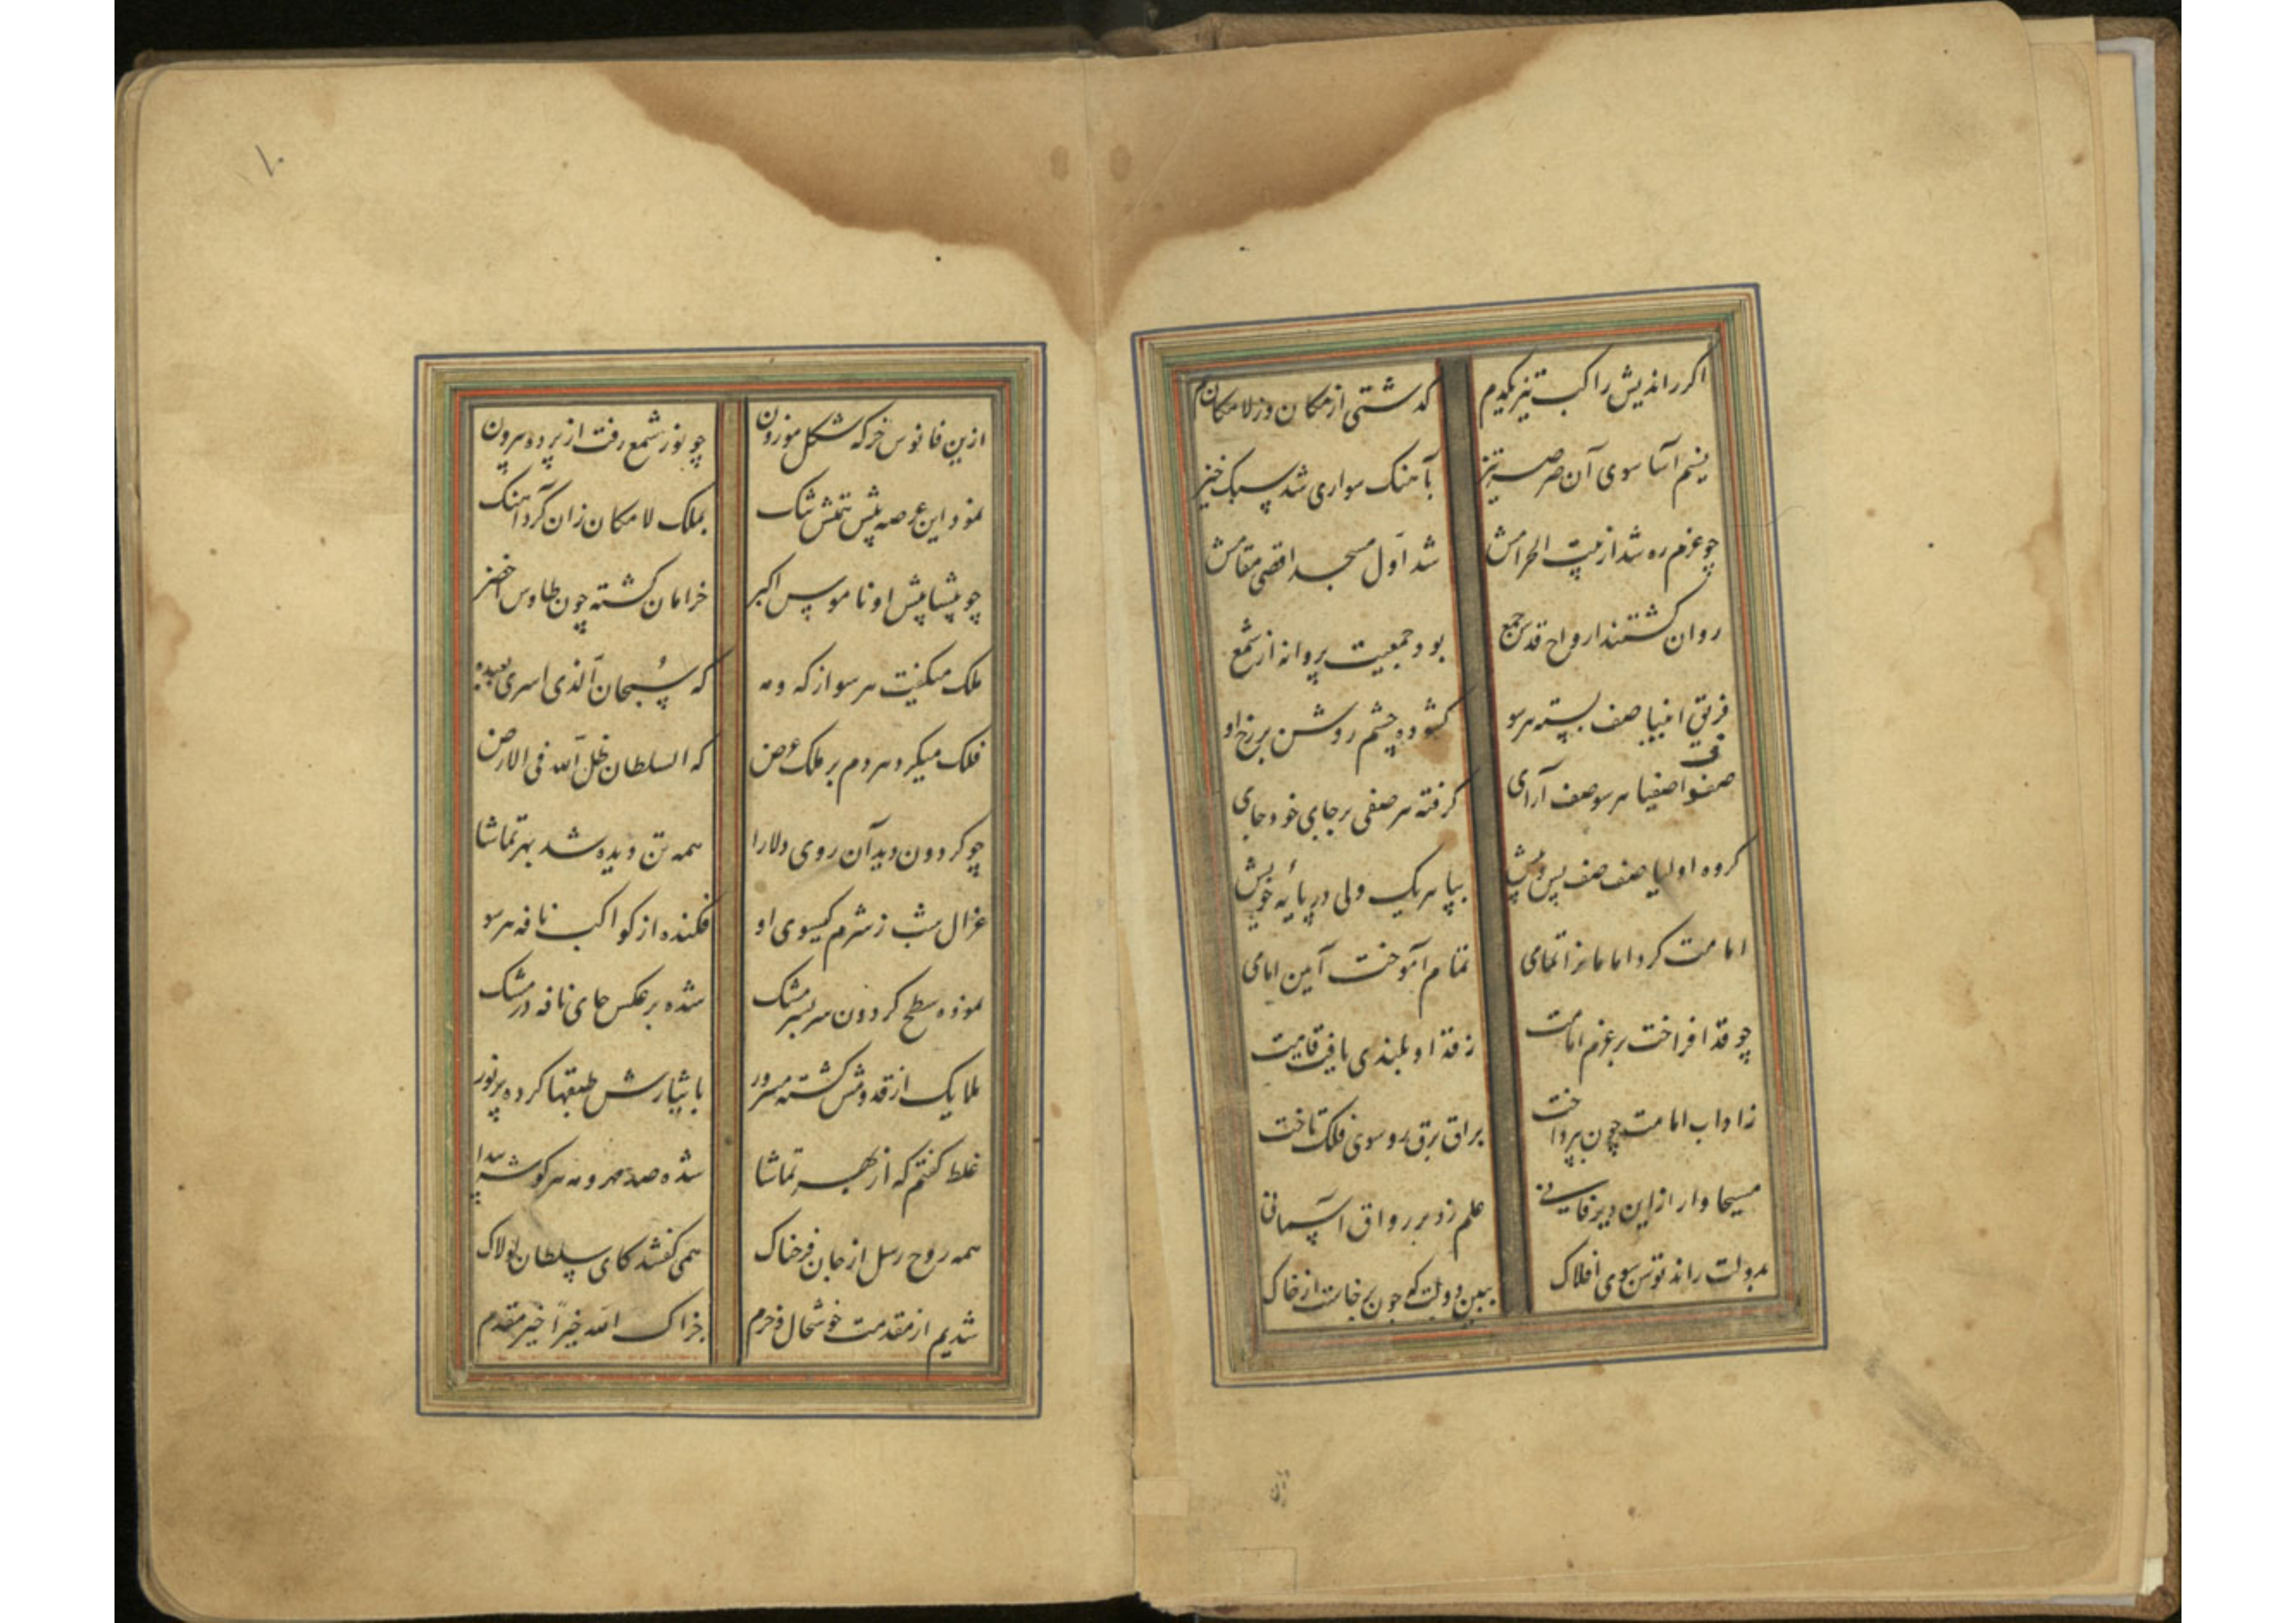 اکر راندیش راکب تیز یکدم
کدشتی از مکان وز لامکان هم
نسیم آسا سوی آن صرصر تیز
بآهنک سواری شد سبک خیز
چو عزم ره شد از بیت الحرامش
شد اول مسجد اقصی مقامش
روان کشتند ارواح قدس جمع
بود جمعیت پروانه از شمع
فریق انبیا صف بسته هر سو
کشوده چشم روشن بر رخ او
صفوف اصفیا هر سو صف آرای
کرفته هر صفی بر جای خود جای
کروه اولیا صف صف پس و پیش
بپا هر یک ولی در پایهٔ خویش
امامت کرد امامانرا تمامی
تمام آموخت آیین امامی
چو قد افراخت بر عزم امامت
ز قد او بلندی یافت قامت
ز اداب امامت چون بپرداخت
براق برق رو سوی فلک تاخت
مسیحا وار ازین دیر فانی
علم زد بر رواق آسمانی
بدولت راند توسن سوی افلاک
ببین دولت که چون برخاست از خاک
۱۰
ازین فانوس خرکه شکل موزون
چو نور شمع رفت از پرده بیرون
نمود این عرصه پیش همتش تنک
بملک لامکان زان کرد آهنک
چو پیشاپیش او ناموس اکبر
خرامان کشته چون طاوس اخضر
ملک میکفت هر سو از که و مه
که سُبحان الّذی اسری بعبده
فلک میکرد هر دم بر ملک عرض
که السلطان ظلّ الله فی الارض
چو کردون دید آن روی دلارا
همه تن دیده شد بهر تماشا
غزال شب ز شرم کیسوی او
فکنده از کواکب نافه هر سو
نموده سطح کردون سر بسر مشک
شده بر عکس جای نافه در مشک
ملایک از قدومش کشته مسرور
بایثارش طبقها کرده پر نور
غلط کفتم که از بهر تماشا
شده صد مهر و مه هر کوشه پیدا
همه روح رسل از جان فرحناک
همی کفتند کای سلطان لولاک
شدیم از مقدمت خوشحال و خرم
جزاک الله خیراً خیر مقدم